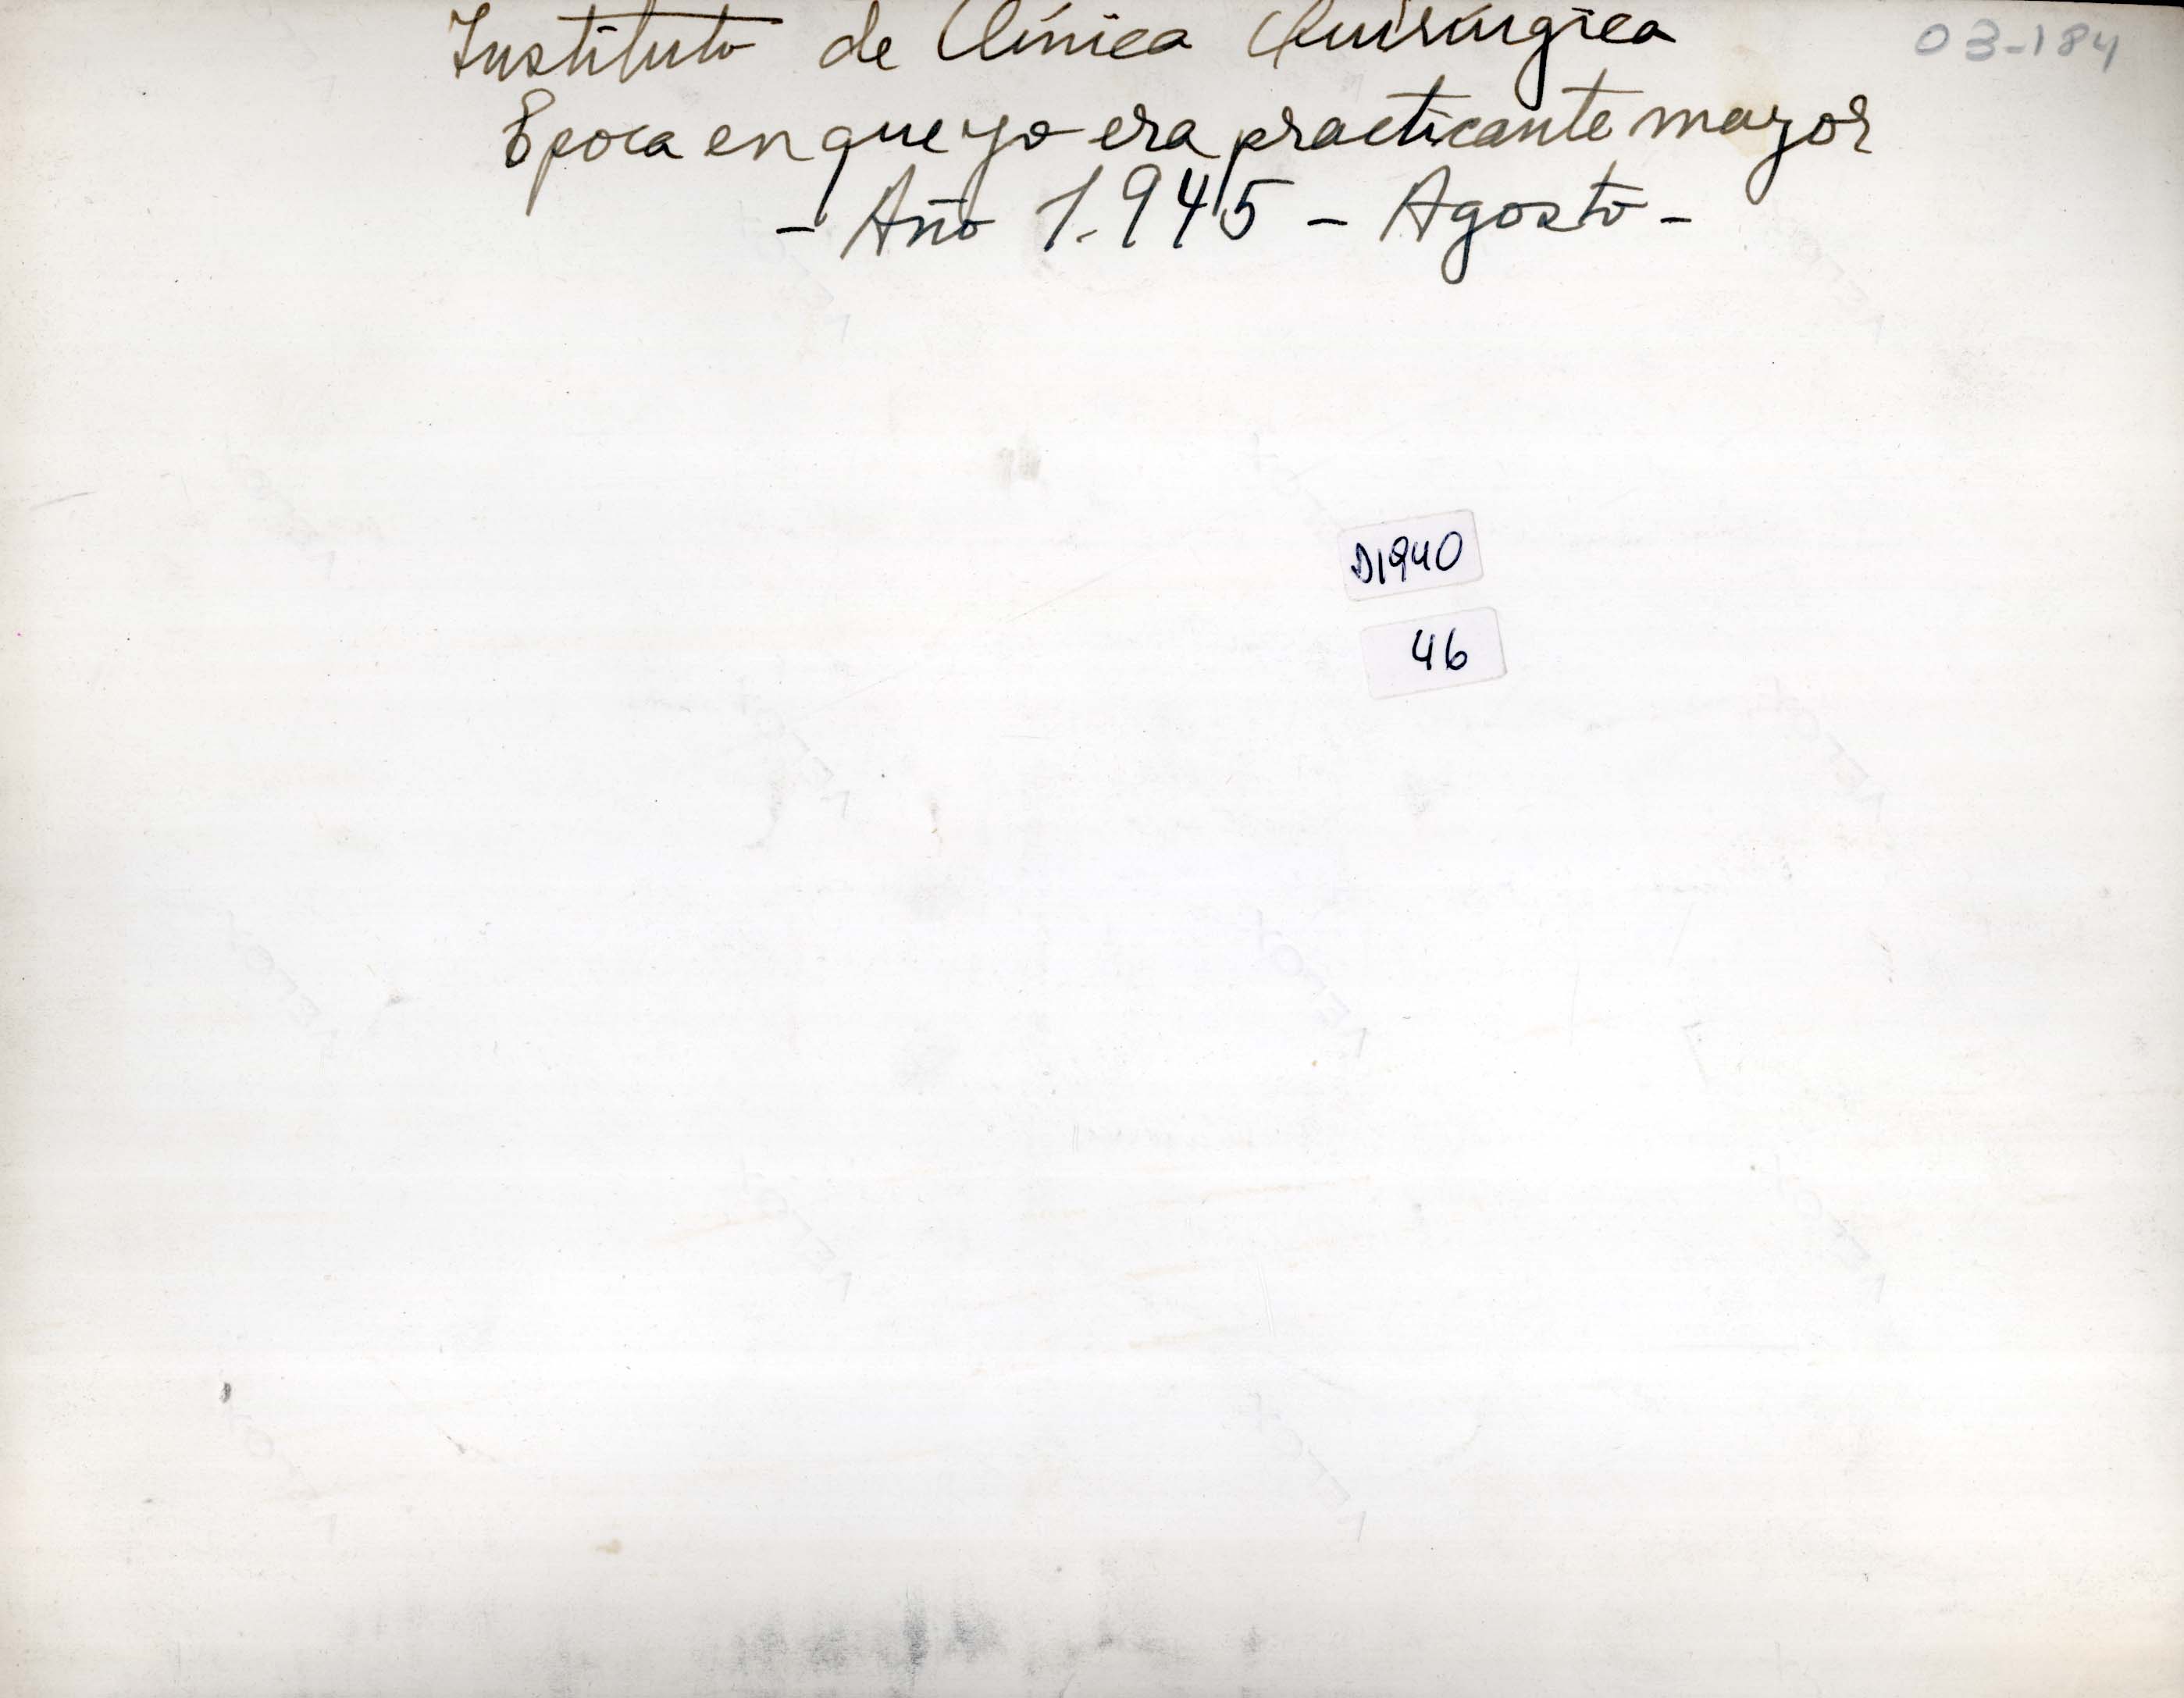 Instituto de Clínica Quirúrgica
03-184
Epoca en que yo era practicante mayor
- Año 1.945 - Agosto -
D1940
46